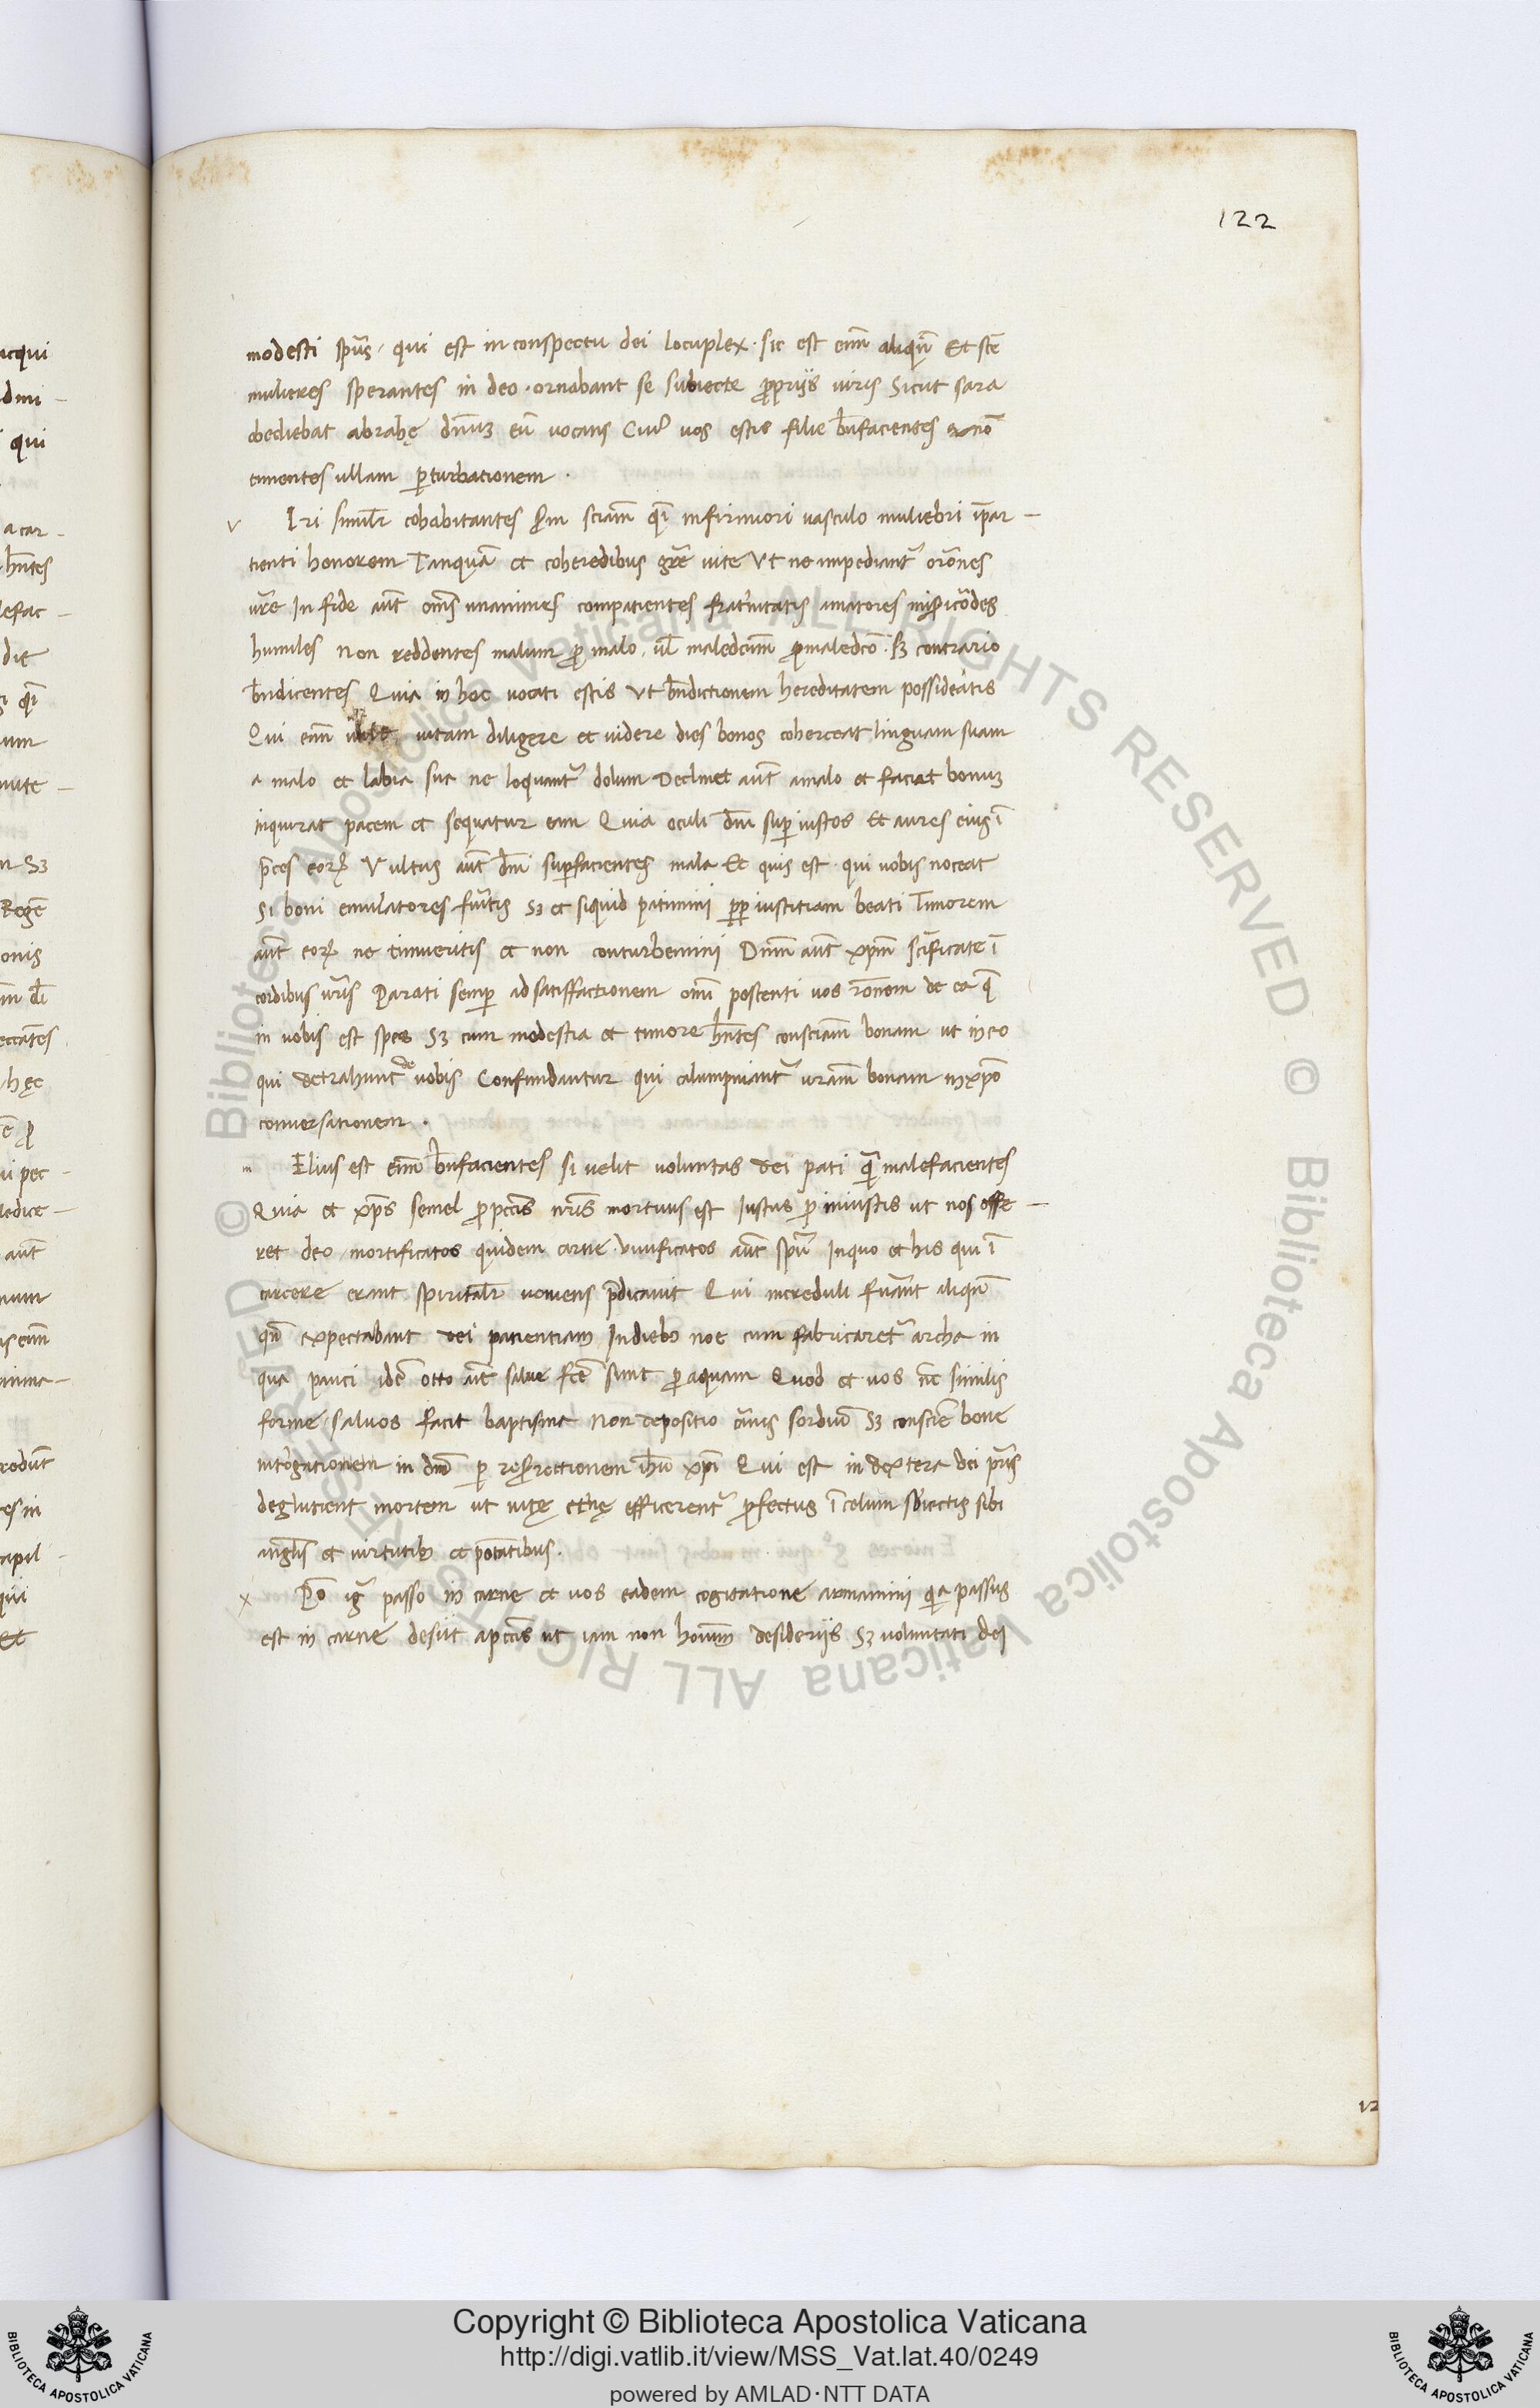 122
modesti sp̄us, qui est in conspectu dei locuplex. sic est enī aliqn̄ Et sc̄e
mulieres sperantes in deo. ornabant se subiecte ꝓprijs uiris Sicut sara
obediebat abrahę dn̄uꝫ eū uocans Cuiꝰ uos estis filie bn̄facientes et nō
timentes ullam ꝑturbationem.
v Iri simil̄r cohabitantes sciam̄ qͥ infirmiori uasculo muliebri īpar-
tienti honorem Tanquā et coheredibus gr̄e uite Ut ne impediantᷣ or̄ones
ur̄e In fide aūt om̄s unanimes compatientes frat̄nitatis amatores mīsicōdes
humiles Non reddentes malum ꝓ malo, ul̄ maledcūm ꝓ maledcō. sꝫ contrario
bn̄dicentes Quia in hoc uocati estis Ut bn̄dictionem hereditatem possideatis
Qui enī uult uitam diligere et uidere dies bonos coherceat linguam suam
a malo et labia sua ne loquantᷣ dolum Declinet aūt a malo et faciat bonuꝫ
inquirat pacem et sequatur eam Quia oculi dn̄i suꝑ iustos Et aures eiꝰ ī
p̄ces eoꝝ Uultus aūt dn̄i suꝑ facientes mala Et quis est. qui uobis noceat
Si boni emulatores fūitis Sꝫ et siquid patimini ꝓꝑ iustitiam beati Timorem
aūt eoꝝ ne timueritis et non conturbemini Dnm̄ aūt xp̄m sc̄ificate ī
cordibus ur̄is Parati semꝑ ad satisfactionem omī poscenti uos rōnem de ea q̄
in uobis est spes Sꝫ cum modestia et timore hn̄tes consciam̄ bonam ut in eo
qui detrahunt de uobis Confundantur qui calumpniantᷣ ur̄am bonam in xp̄o
conuersationem.
m Elius est enī bn̄facientes si uelit uoluntas dei pati q̄ malefacientes
Quia et xp̄s semel ꝓ pccīs nr̄is mortuus est Iustus ꝓ iniustis ut nos offe-
ret deo, mortificatos quidem carne. uiuificatos aūt spū In quo et his qui ī
carcere erant spirital̄r ueniens p̄dicauit Qui increduli fūant aliqn̄
qn̄ expectabant dei patientiam In diebꝫ noe cum fabricaretᷣ archa in
qua pauci idē otto aīe salue fc̄e sunt ꝑ aquam Quod et uos nc̄ similis
forme, saluos facit baptisma Non depositio c̄nis sordiū Sꝫ conscīe bone
int̄rogationem in dn̄o ꝑ resurectionem ih̄u xp̄i Qui est in dextera dei p̄ris
deglutient mortem ut uitę et̄nę efficerentᷣ ꝓfectus ī celum sb̄iectis sibi
angl̄is et uirtutibꝫ et potātibus.
x Pō igᷣ passo in carne et uos eadem cogitatione armamini qͥa passus
est in carne desiit a pccīs ut iam non homīm desiderijs Sꝫ uoluntati dei
Copyright © Biblioteca Apostolica Vaticana
http://digi.vatlib.it/view/MSS_Vat.lat.40/0249
powered by AMLAD·NTT DATA
BIBLIOTECA APOSTOLICA VATICANA
BIBLIOTECA APOSTOLICA VATICANA
© Biblioteca Apostolica Vaticana ALL RIGHTS RESERVED © Biblioteca Apostolica Vaticana ALL RIGHTS RESERVED